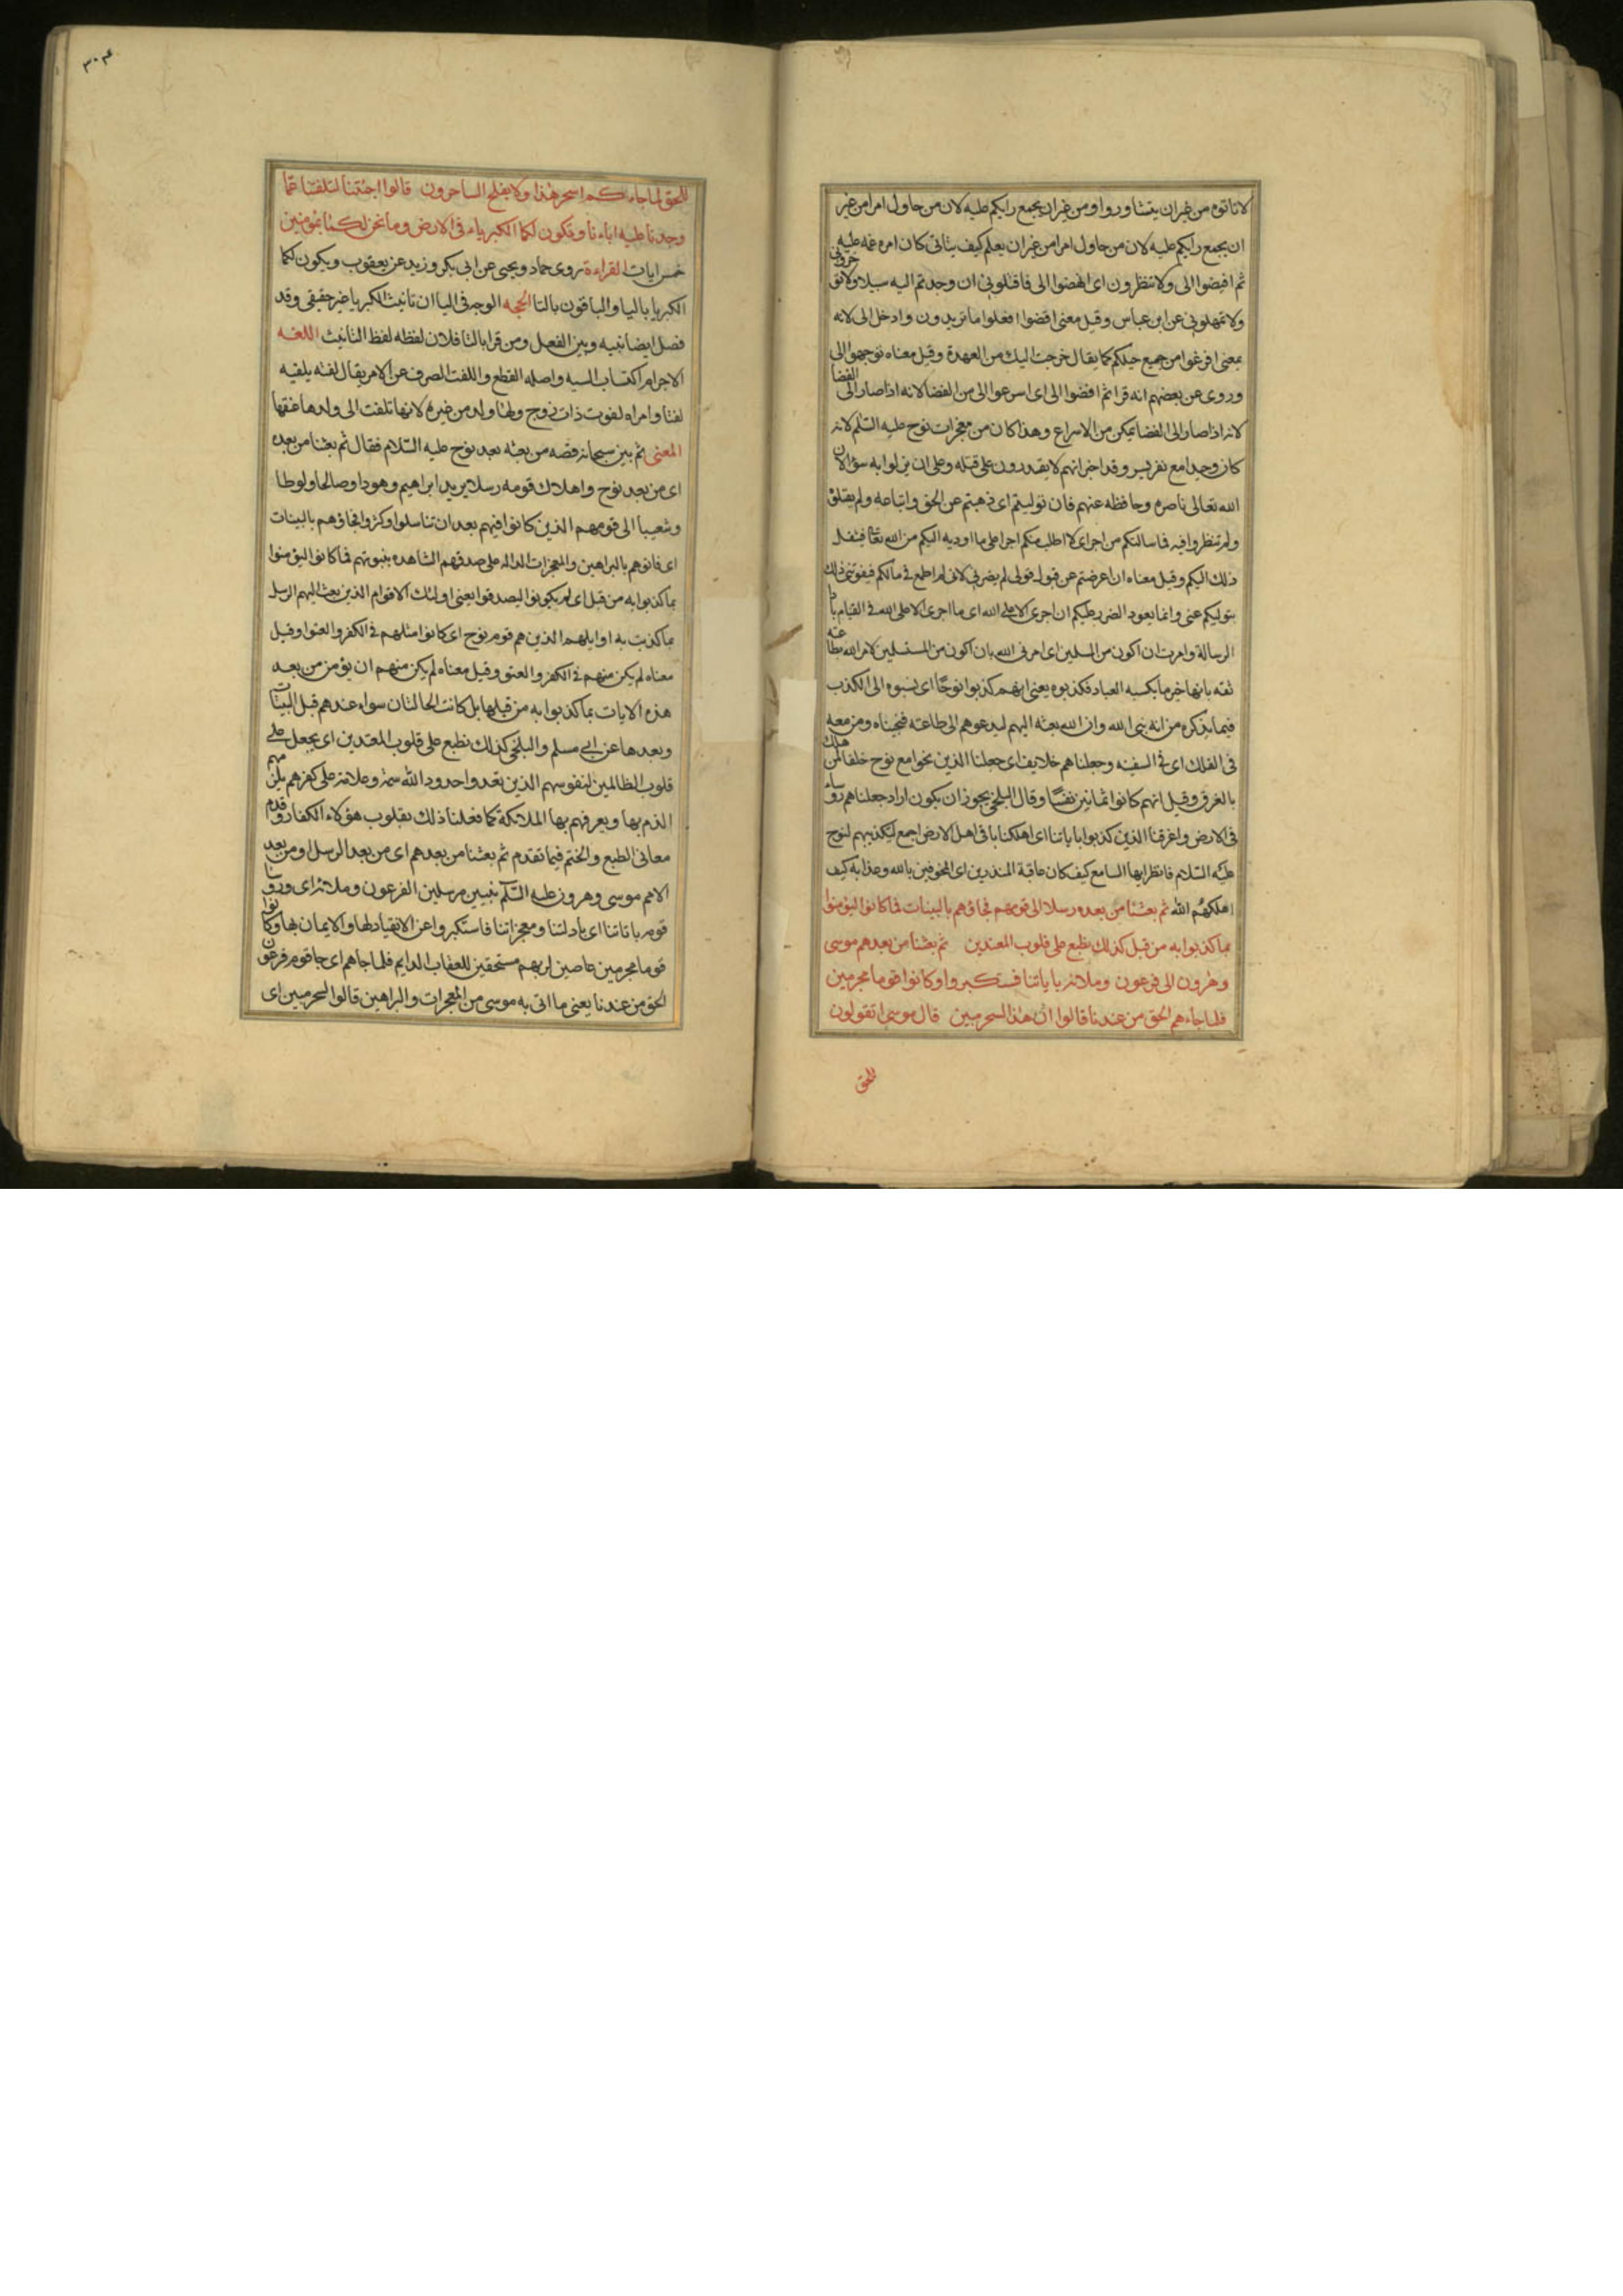 لاتاتوه من غيران يتشاوروا ومن غيران يجمع رايكم عليه لان من حاول امرا من غير
ان يجمع رايكم عليه لان من حاول امرا من غيران يعلم كيف يتاتى كان امره غمه عليه
ثم افيضوا الى ولا تنظرون اى انهضوا الى فاقتلونى ان وجدتم اليه سبيلا ولا تؤخرونى
ولا تمهلونى عن ابن عباس وقيل معنى اقضوا افعلوا ما تريدون وادخل الى لانه
بمعنى افرغوا من جميع حيلكم كما يقال خرجت اليك من العهدة وقيل معناه توجهوا الى
وروى عن بعضهم انه قرا ثم افضوا الى اى اسرعوا الى من الفضا لانه اذا صار الى الفضا
لانه اذا صار الى الفضا تمكن من الاسراع وهذا كان من معجزات نوح عليه السلم لانه
كان وحيدا مع نفر يسير وقد اخبر انهم لا يقدرون على قتله وعلى ان ينزلوا به سؤا لان
الله تعالى ناصره وحافظه عنهم فان توليتم اى ذهبتم عن الحق واتباعه ولم يقبلوه
ولم تنظروا فيه فما سالتكم من اجر اى لا اطلب منكم اجرا على ما اوديه اليكم من الله فيثقل
ذلك اليكم وقيل معناه ان اعرضتم عن قبول قولى لم يضرنى لانى لم اطمع فى مالكم فيفوتنى ذلك
بتوليكم عنى وانما يعود الضرر عليكم ان اجرى الا على الله اى ما اجرى الا على الله فى القيام بادا
الرسالة وامرت ان اكون من المسلمين اى امرنى الله بان اكون من المستسلمين لامر الله بطاعته
ثقه بانها خير ما يكسبه العباد فكذبوه يعنى انهم كذبوا نوحا اى نسبوه الى الكذب
فيما يذكره من انه نبى الله وان الله بعثه اليهم ليدعوهم الى طاعته فنجيناه ومن معه
فى الفلك اى فى السفينه وجعلناهم خلايف اى جعلنا الذين نجوا مع نوح خلفا لمن هلك
بالغرق وقيل انهم كانوا ثمانين نفسا وقال البلخى يجوز ان يكون اراد جعلناهم روساء
فى الارض واغرقنا الذين كذبوا باياتنا اى اهلكنا باقى اهل الارض اجمع لتكذيبهم لنوح
عليه السلام فانظر ايها السامع كيف كان عاقبة المنذرين اى المخوفين بالله وعذابه كيف
اهلكهم الله ثم بعثنا من بعده رسلا الى قومهم فجاؤهم بالبينات فما كانوا ليؤمنوا
بما كذبوا به من قبل كذلك نطبع على قلوب المعتدين ثم بعثنا من بعدهم موسى
وهرون الى فرعون وملائه باياتنا فستكبروا وكانوا قوما مجرمين
فلما جاءهم الحق من عندنا قالوا ان هذا لسحر مبين قال موسى اتقولون
للحق
٣٠٤
للحق لما جاءكم اسحر هذا ولا يفلح الساحرون قالوا اجئتنا لتلفتنا عما
وجدنا عليه اباءنا وتكون لكما الكبرياء فى الارض وما نحن لكما بمؤمنين
خمس ايات القراءة روى حماد ويحيى عن ابى بكر وزيد عن يعقوب ويكون لكما
الكبريا باليا والباقون بالتا الحجه الوجه فى اليا ان تانيث الكبريا غير حقيقى وقد
فصل ايضا بينه وبين الفعل ومن قرا بالتا فلان لفظه لفظ التانيث اللغه
الاجرام اكتساب السيه واصله القطع واللفت الصرف عن الامر يقال لفته يلفته
لفتا وامراه لفوت ذات زوج ولها ولد من غيره لانها تلفت الى ولدها عنقها
المعنى ثم بين سبحانه قصه من بعثه بعد نوح عليه السلام فقال ثم بعثنا من بعده
اى من بعد نوح واهلاك قومه رسلا يريد ابراهيم وهودا وصالحا ولوطا
وشعيبا الى قومهم الذين كانوا فيهم بعد ان تناسلوا وكثروا فجاؤهم بالبينات
اى فاتوهم بالبراهين والمعجزات الداله على صدقهم الشاهده بنبوتهم فما كانوا ليؤمنوا
بما كذبوا به من قبل اى لم يكونوا ليصدقوا يعنى اولئك الاقوام الذين بعث اليهم الرسل
بما كذبت به اوايلهم الذين هم قوم نوح اى كانوا مثلهم فى الكفر والعتو وقيل
معناه لم يكن منهم فى الكفر والعتو وقيل معناه لم يكن منهم ان يؤمن من بعد
هذه الايات بما كذبوا به من قبلها بل كانت الحالتان سواء عندهم قبل البينات
وبعدها عن ابى مسلم والبلخى كذلك نطبع على قلوب المعتدين اى يجعل على
قلوب الظالمين لنفوسهم الذين تعدوا حدود الله سمة وعلامة على كفرهم يلزمهم
الذم بها ويعرفهم بها الملائكة كما فعلنا ذلك بقلوب هؤلاء الكفار وقدم
معانى الطبع والختم فيما تقدم ثم بعثنا من بعدهم اى من بعد الرسل او من بعد
الامم موسى وهرون عليه السلم نبيين مرسلين الفرعون وملائه اى وروسا
قومه باياتنا اى بادلتنا ومعجزاتنا فاستكبروا عن الانقياد لها والايمان بها وكانوا
قوما مجرمين عاصين لربهم مستحقين للعقاب الدايم فلما جاهم اى جا قوم فرعون
الحق من عندنا يعنى ما اتى به موسى من المعجزات والبراهين قالوا لسحر مبين اى